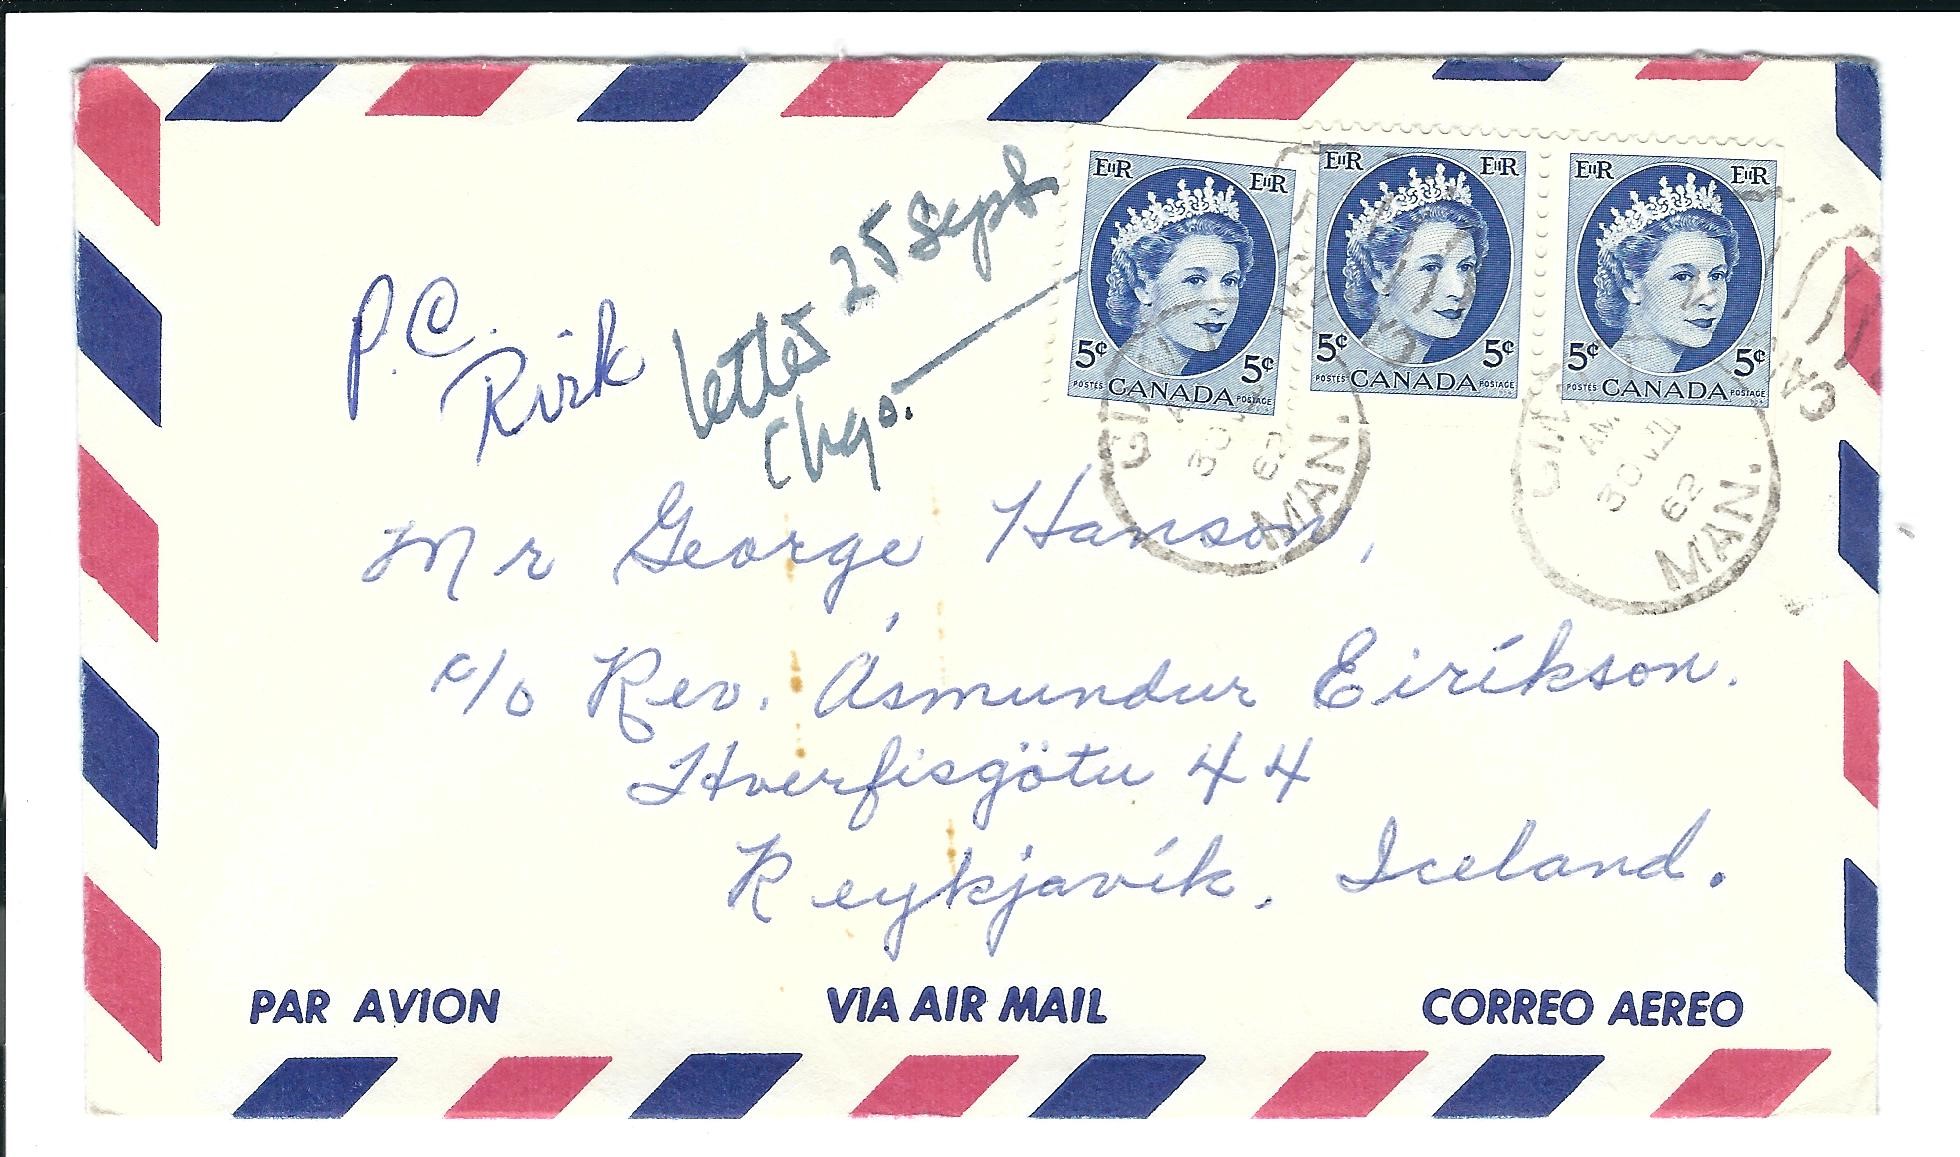 P.C.
Rvík
letter 25 Sept.
Chgo.
EIIR EIIR
5¢ 5¢
POSTES CANADA POSTAGE
EIIR EIIR
5¢ 5¢
POSTES CANADA POSTAGE
EIIR EIIR
5¢ 5¢
POSTES CANADA POSTAGE
AM
30 VII
62
MAN.
AM
30 VII
62
MAN.
Mr George Hanson,
c/o Rev. Ásmundur Eiríkson.
Hverfisgötu 44
Reykjavík, Iceland.
PAR AVION VIA AIR MAIL CORREO AEREO